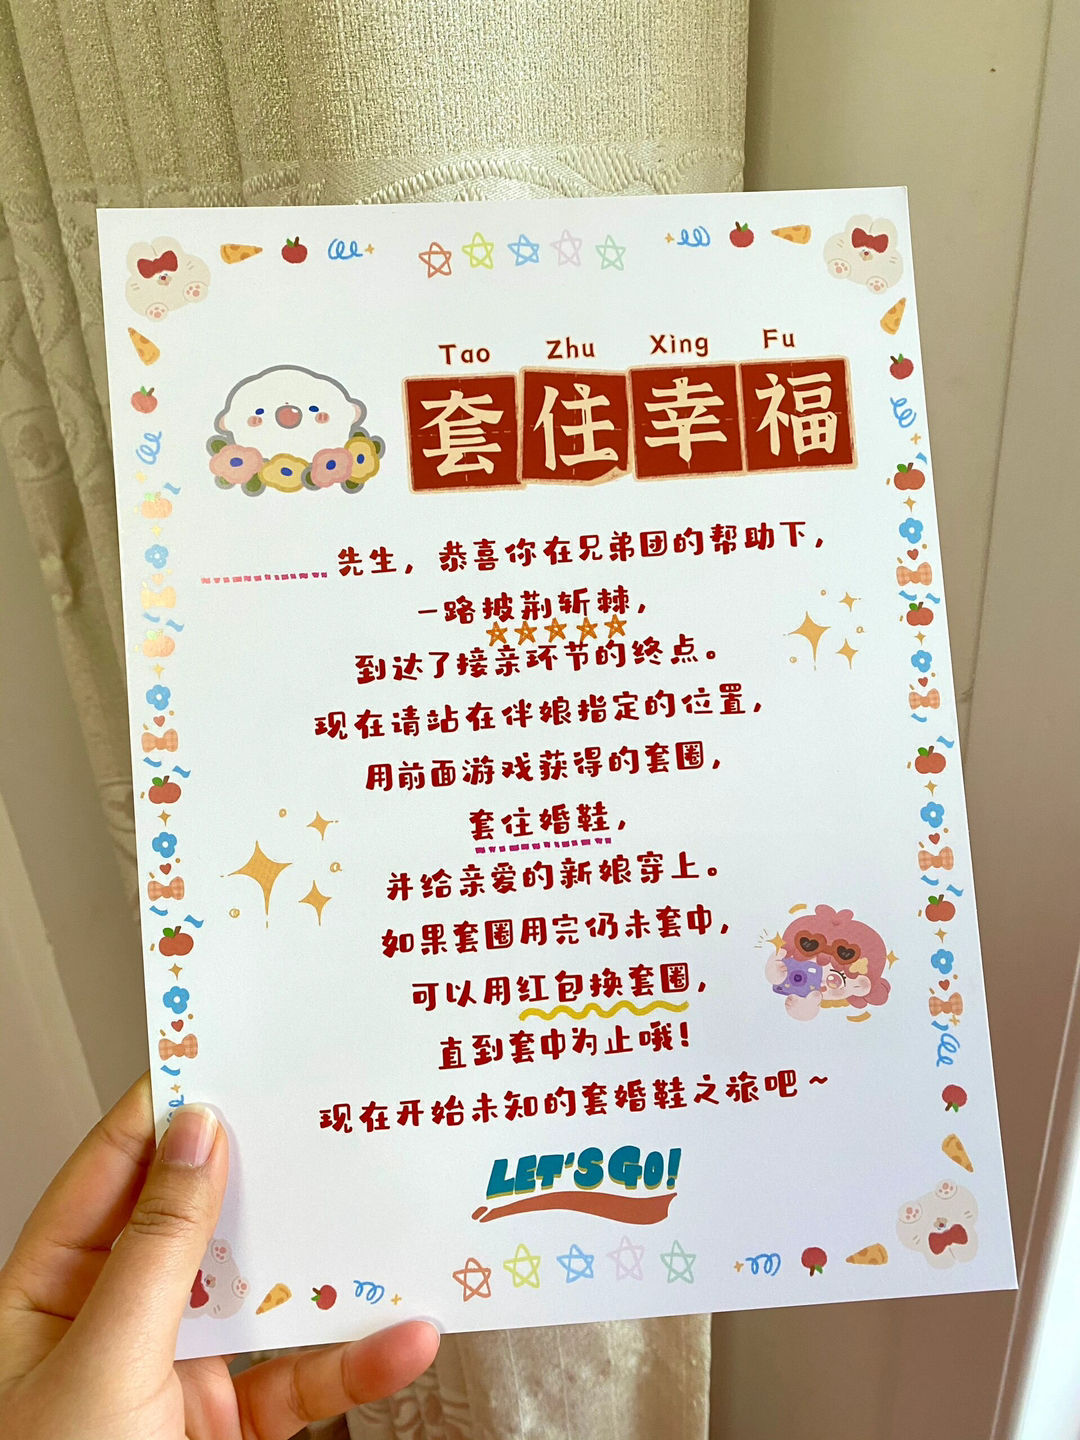 Tao Zhu Xing Fu
套住幸福
先生，恭喜你在兄弟团的帮助下，
一路披荆斩棘，
到达了接亲环节的终点。
现在请站在伴娘指定的位置，
用前面游戏获得的套圈，
套住婚鞋，
并给亲爱的新娘穿上。
如果套圈用完仍未套中，
可以用红包换套圈，
直到套中为止哦！
现在开始未知的套婚鞋之旅吧～
LET'S GO!